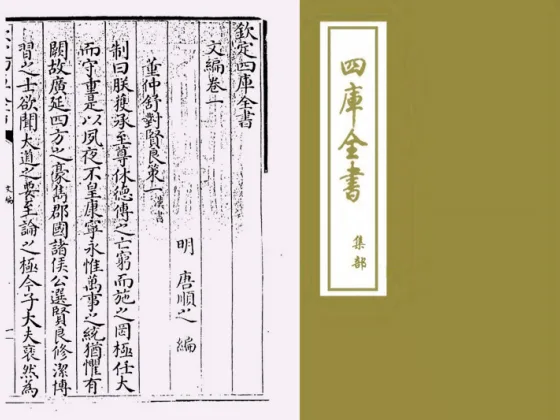 欽定四庫全書
文編卷一
明 唐順之 編
董仲舒對賢良策一 漢書
制曰朕獲承至尊休德傳之亡窮而施之罔極任大
而守重是以夙夜不皇康寧永惟萬事之統猶懼有
闕故廣延四方之豪雋郡國諸侯公選賢良修潔博
習之士欲聞大道之要至論之極今子大夫裒然為
文編
四庫全書
集部